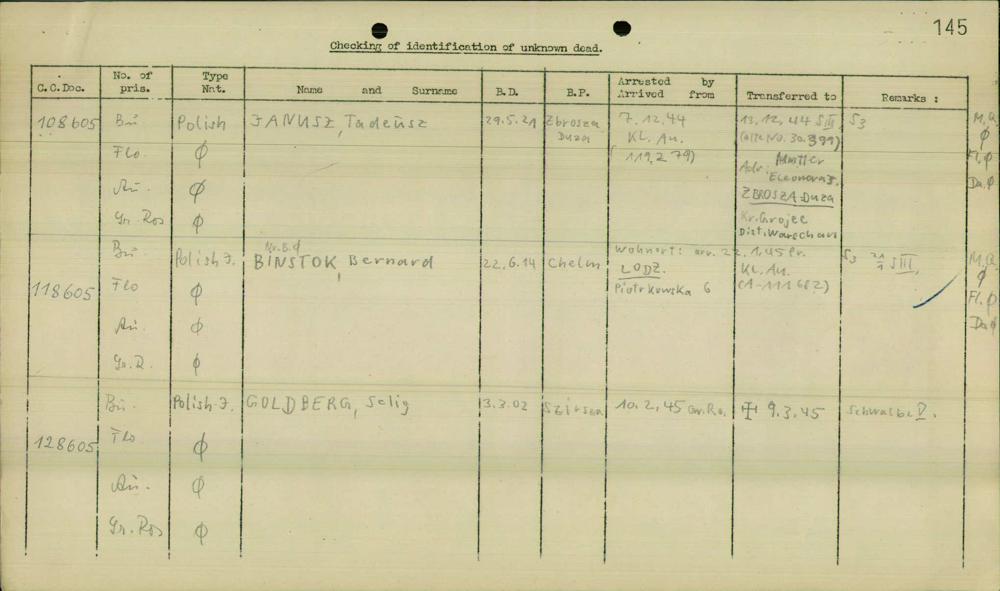 145
Checking of identification of unknown dead.
C.C.Doc. No. of pris. Type Nat. Name and Surname B.D. B.P. Arrested by Arrived from Transferred to Remarks :
108605 Bu Polish JANUSZ, Tadeusz 29.5.21 Zbrosza Duza 7.12.44 KL. Au. 13.12.44 S III S3 M.G.
Flo. ϕ (119279) ϕ
Au. ϕ Adr.: Eleonora ZBROSZA-Duza Fl. ϕ
Gr. Ros ϕ Kr. Grojec Dist. Warschau Da. ϕ
Nr. B. ϕ
118605 Bu Polish J. BINSTOK, Bernard 22.6.14 Chelm Wohnort: arr. 22.1.45 fr. S3 S III, M.G.
Flo ϕ LODZ. KL. Au. ϕ
Piotrkowska 6 (A-111682) Fl. ϕ
Au. ϕ Da. ϕ
Gr. R. ϕ
128605 Bu. Polish-J. GOLDBERG, Selig 3.3.02 10.2.45 Gr. Ro. 9.3.45 Schwalbe V.
Flo ϕ
Au. ϕ
Gr. Ros ϕ